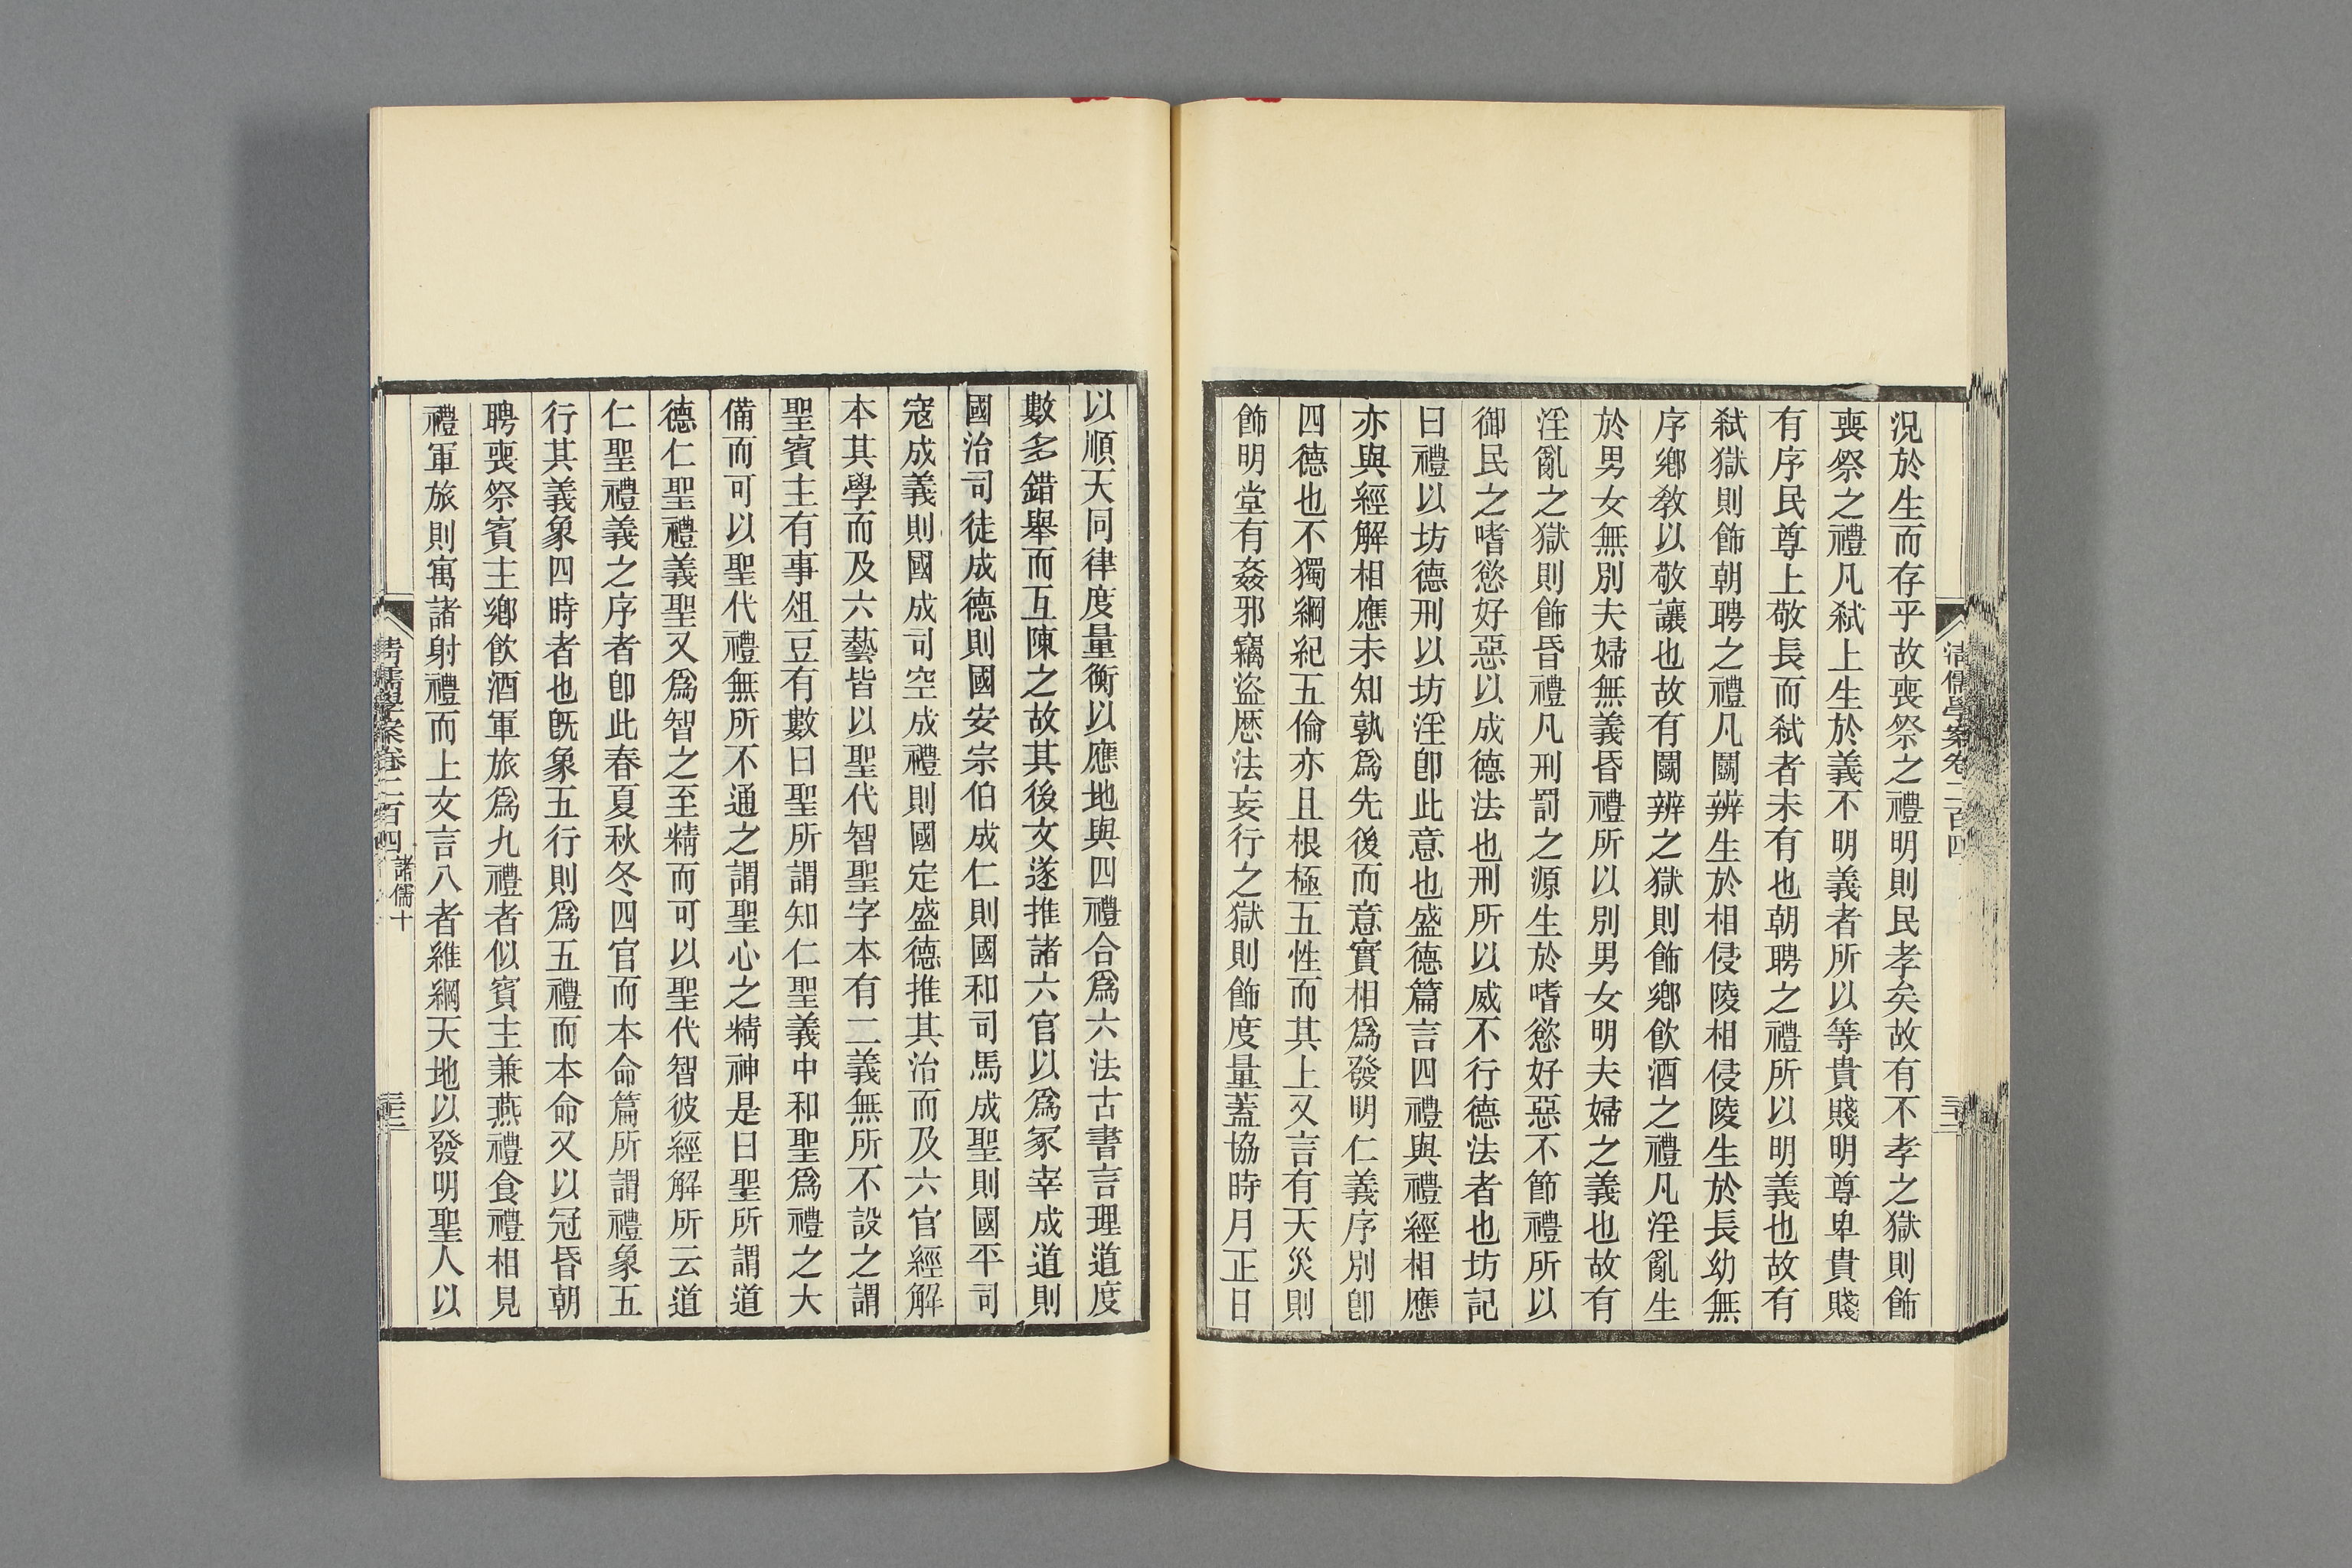 況於生而存乎故喪祭之禮明則民孝矣故有不孝之獄則飾
喪祭之禮凡弑上生於義不明義者所以等貴賤明尊卑貴賤
有序民尊上敬長而弑者未有也朝聘之禮所以明義也故有
弑獄則飾朝聘之禮凡鬭辨生於相侵陵相侵陵生於長幼無
序鄉敎以敬讓也故有鬭辨之獄則飾鄉飮酒之禮凡淫亂生
於男女無別夫婦無義昏禮所以別男女明夫婦之義也故有
淫亂之獄則飾昏禮凡刑罰之源生於嗜慾好惡不節禮所以
御民之嗜慾好惡以成德法也刑所以威不行德法者也坊記
曰禮以坊德刑以坊淫卽此意也盛德篇言四禮與禮經相應
亦與經解相應未知孰爲先後而意實相爲發明仁義序別卽
四德也不獨綱紀五倫亦且根極五性而其上又言有天災則
飾明堂有姦邪竊盜歴法妄行之獄則飾度量蓋協時月正日
清儒學案卷二百四
三十二
以順天同律度量衡以應地與四禮合爲六法古書言理道度
數多錯舉而互陳之故其後文遂推諸六官以爲冢宰成道則
國治司徒成德則國安宗伯成仁則國和司馬成聖則國平司
寇成義則國成司空成禮則國定盛德推其治而及六官經解
本其學而及六藝皆以聖代智聖字本有二義無所不設之謂
聖賓主有事俎豆有數曰聖所謂知仁聖義中和聖爲禮之大
備而可以聖代禮無所不通之謂聖心之精神是曰聖所謂道
德仁聖禮義聖又爲智之至精而可以聖代智彼經解所云道
仁聖禮義之序者卽此春夏秋冬四官而本命篇所謂禮象五
行其義象四時者也旣象五行則爲五禮而本命又以冠昏朝
聘喪祭賓主鄉飮酒軍旅爲九禮者似賓主兼燕禮食禮相見
禮軍旅則寓諸射禮而上文言八者維綱天地以發明聖人以
清儒學案卷二百四 諸儒十